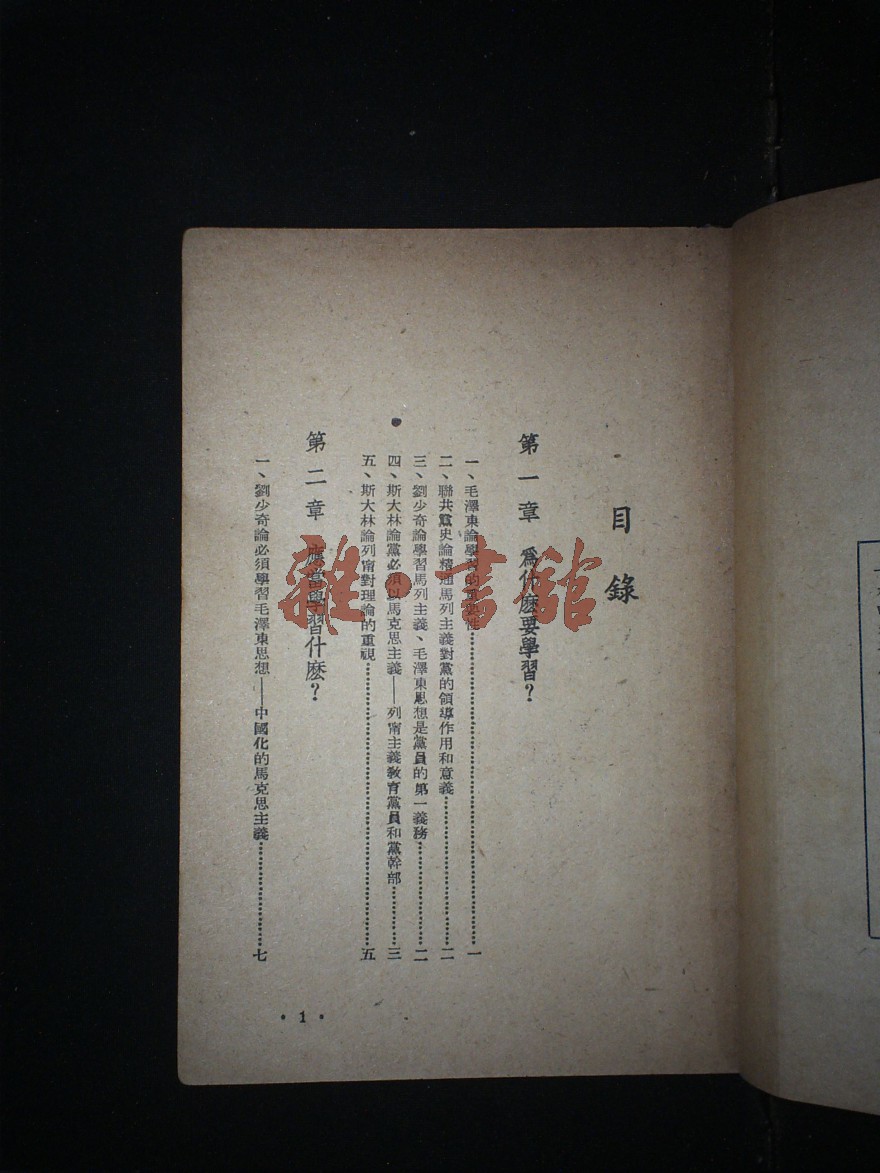 目錄
第一章 爲什麽要學習？
一、毛澤東論學習的重要性⋯⋯一
二、聯共黨史論精通馬列主義對黨的領導作用和意義⋯⋯二
三、劉少奇論學習馬列主義、毛澤東思想是黨員的第一義務⋯⋯二
四、斯大林論黨必須以馬克思主義——列甯主義教育黨員和黨幹部⋯⋯三
五、斯大林論列甯對理論的重視⋯⋯五
第二章 應當學習什麽？
一、劉少奇論必須學習毛澤東思想——中國化的馬克思主義⋯⋯七
• 1 •
雜·書館